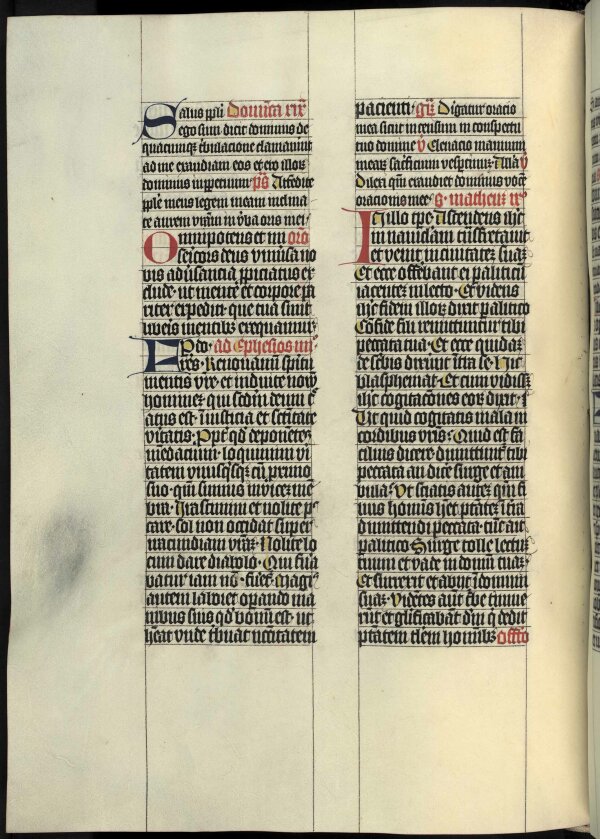 Salus ppli Domica xix
ego sum dicit dominus de
quacumqz tbulacione clamauerint
ad me exaudiam eos et ero illoꝝ
dominus inppetuum · ps Attendite
pple meus legem meam inclina
te aurem vram in vba oris mei ·
Omnipotens et mi oro
sericors deus vniūsa no
bis adūsantia ppiciatus ex
clude · ut mente et corpore pa
riter expediti · que tua sunt
liberis mentibus exequamur ·
Epto · ad Ephesios iiii ·
Fres · Renouamini spiritu
mentis vre · et induite nouū
hominē · qui scdm deum cre
atus est · ī iusticia et scītate
vitatis · Ppt qd deponētes
mēdacium · loquimini vi
tatem vnusqsqz cū primo
suo · qm sumus inuicem mē
bra · Irascimini et nolite pec
care · sol non occidat super
iracundiam vram · Nolite lo
cum dare diabolo · Qui fura
batur iam nō furet · Magis
autem laboret operando ma
nibus suis qd bonū est · ut
habeat vnde tbuat necessitatem
pacienti · gr Dirigatur oratio
mea sicut incensum in conspectu
tuo domine v Eleuacio manuum
mearꝝ sacrificium vespertinum · Alla v
Dūexi qm exaudiet dominus vocē
oracionis mee · s · matheum ix
In illo tpe · Ascendens ihc
in nauiculam transfretauit
et venit in ciuitatē suā ·
Et ecce offerebant ei paliticū
iacentē in lecto · Et videns
ihc fidem illoꝝ · dixit palitico
Cōfide fili remittuntur tibi
peccata tua · Et ecce quidam
de scbis dixerūt intra se · hic
blasphemat · Et cum vidissz
ihc cogitaciones eoꝝ dixit ·
Ut quid cogitatis mala in
cordibus vris · Quid est fa
cilius dicere · dimittuntur tibi
peccata · an dicere surge et am
bula · Ut sciatis autem qm fi
lius hominis habet ptatem in terra
dimittendi peccata · tūc ait
palitico · Surge tolle lectum
tuum et vade in domū tuam ·
Et surrexit et abijt ī domum
suam · Videntes aut turbe timue
rūt et glificabāt dm qi dedit
ptatem talem hominibz offto